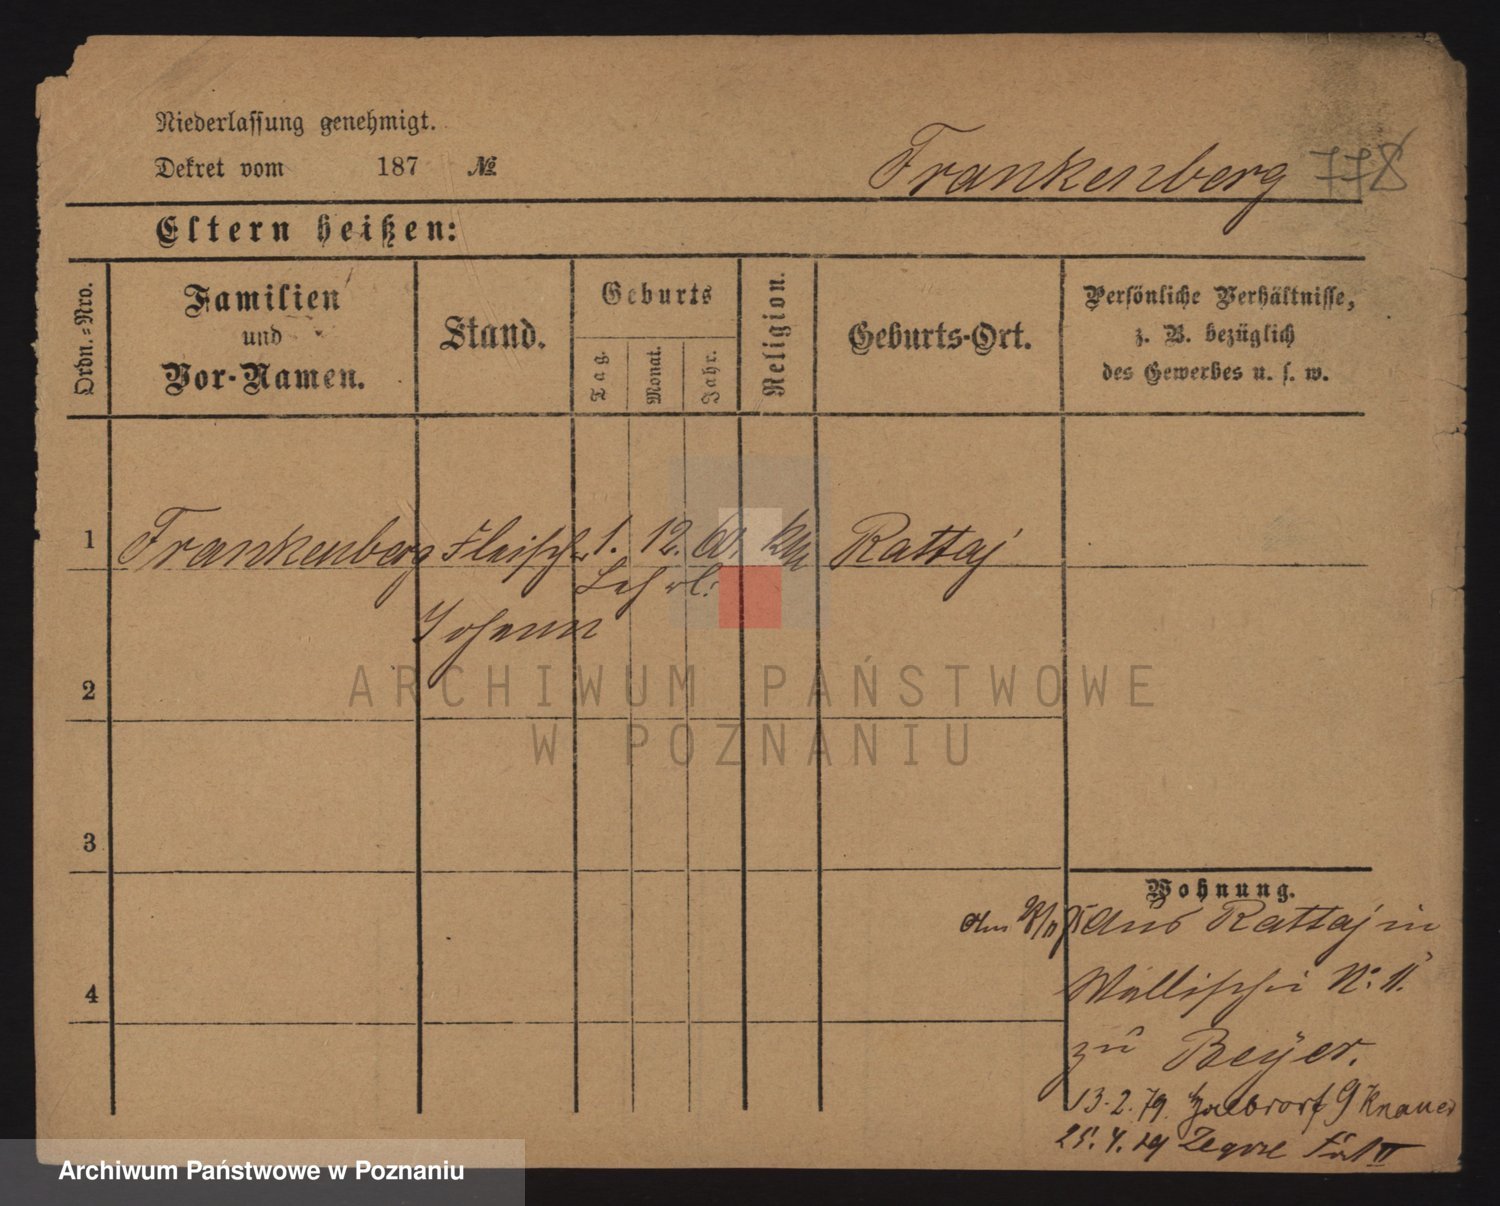 Niederlassung genehmigt.
Dekret vom 187 №
Frankenberg 778
Eltern heißen:
Ordn.=Nro.
Familien
und
Vor-Namen.
Stand.
Geburts
Tag.
Monat.
Jahr.
Religion.
Geburts-Ort.
Persönliche Verhältnisse,
z. B. bezüglich
des Gewerbes u. s. w.
1 Frankenberg Fleischer 1. 12. 60. kth Rattaj
Lehrl.
Johann
2
3
4
Wohnung.
aus Rattaj in
Wallischei N: 11.
zu Beyer.
13.2.79. Halbdorf 9 Knauer
Zegrze
ARCHIWUM PAŃSTWOWE
W POZNANIU
Archiwum Państwowe w Poznaniu